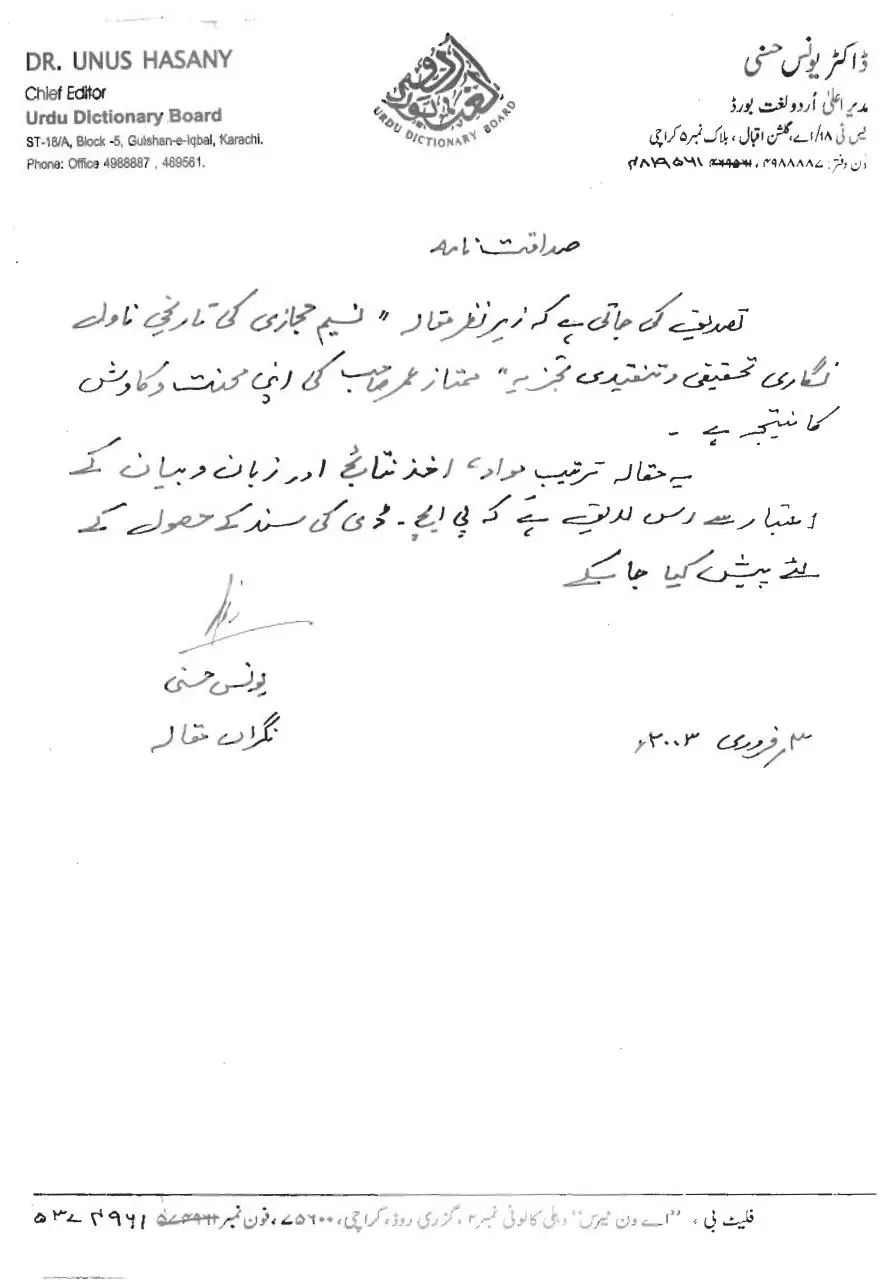 DR. UNUS HASANY
Chief Editor
Urdu Dictionary Board
ST-18/A, Block -5, Gulshan-e-Iqbal, Karachi.
Phone: Office 4988887 , 469561.
اُردو لغت بورڈ
URDU DICTIONARY BOARD
ڈاکٹر یونس حسنی
مدیر اعلیٰ اُردو لغت بورڈ
یس ٹی ۱۸/اے، گلشن اقبال ، بلاک نمبر ۵ کراچی
ون دفتر: ۴۹۸۸۸۸۷،
صداقت نامہ
تصدیق کی جاتی ہے کہ زیر نظر مقالہ " نسیم حجازی کی تاریخی ناول
نگاری تحقیقی و تنقیدی تجزیہ" ممتاز عمر صاحب کی اپنی محنت و کاوش
کا نتیجہ ہے ۔
یہ مقالہ ترتیب مواد، اخذ نتائج اور زبان و بیان کے
اعتبار سے اس لائق ہے کہ پی ایچ ۔ ڈی کی سند کے حصول کے
لئے پیش کیا جا سکے
یونس حسنی
نگراں مقالہ
۳ فروری ۲۰۰۳ء
فلیٹ بی ، "اے ون ٹیرس" دہلی کالونی نمبر ۲، گزری روڈ، کراچی، ۷۵۶۰۰، فون نمبر